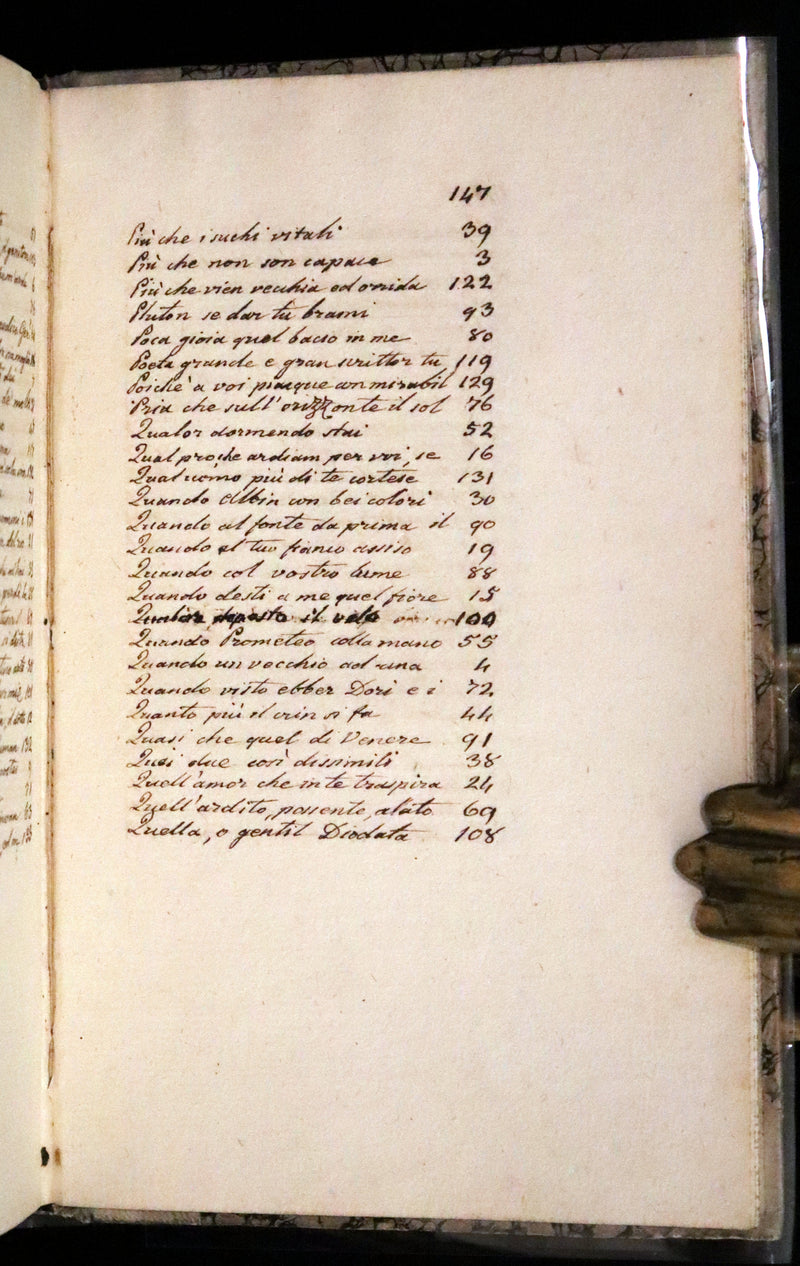 147
Più che i suchi vitali 39
Più che non son capace 3
Più che vien vecchia ed orrida 122
Pluton se dar tu brami 93
Poca gioia quel bacio in me 80
Poeta grande e gran scrittor tu 119
Poichè a voi piacque con mirabil 129
Pria che sull'orizzonte il sol 76
Qualor dormendo stai 52
Qual pro che ardiam per voi, se 16
Qual uomo più di te cortese 131
Quando Albin con bei colori 30
Quando al fonte da prima il 90
Quando al tuo fianco assiso 19
Quando col vostro lume 88
Quando desti a me quel fiore 15
deposto il velo 100
Quando Prometeo colla mano 55
Quando un vecchio ad una 4
Quando visto ebber Dori e i 72
Quanto più il crin si fa 44
Quasi che quel di Venere 91
Quei due così dissimili 38
Quell'amor che in te traspira 24
Quell'ardito, possente, alato 69
Quella, o gentil Diodata 108